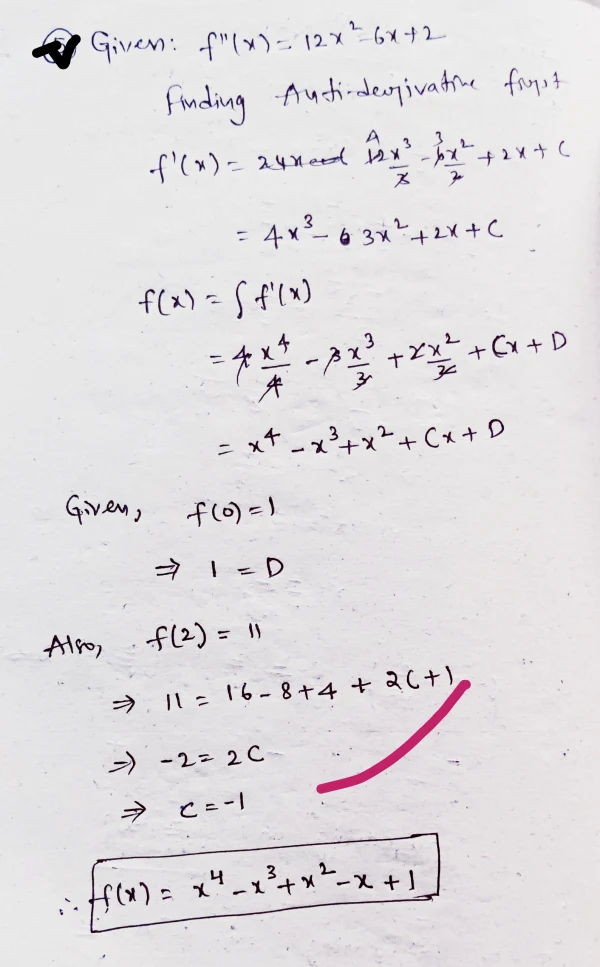 Given: f"(x) = 12x² - 6x + 2
Finding Anti-derivative first
f'(x) = 12x³/3 - 6x²/2 + 2x + C
= 4x³ - 3x² + 2x + C
f(x) = ∫ f'(x)
= 4x⁴/4 - 3x³/3 + 2x²/2 + Cx + D
= x⁴ - x³ + x² + Cx + D
Given, f(0) = 1
⇒ 1 = D
Also, f(2) = 11
⇒ 11 = 16 - 8 + 4 + 2C + 1
⇒ -2 = 2C
⇒ C = -1
∴ f(x) = x⁴ - x³ + x² - x + 1